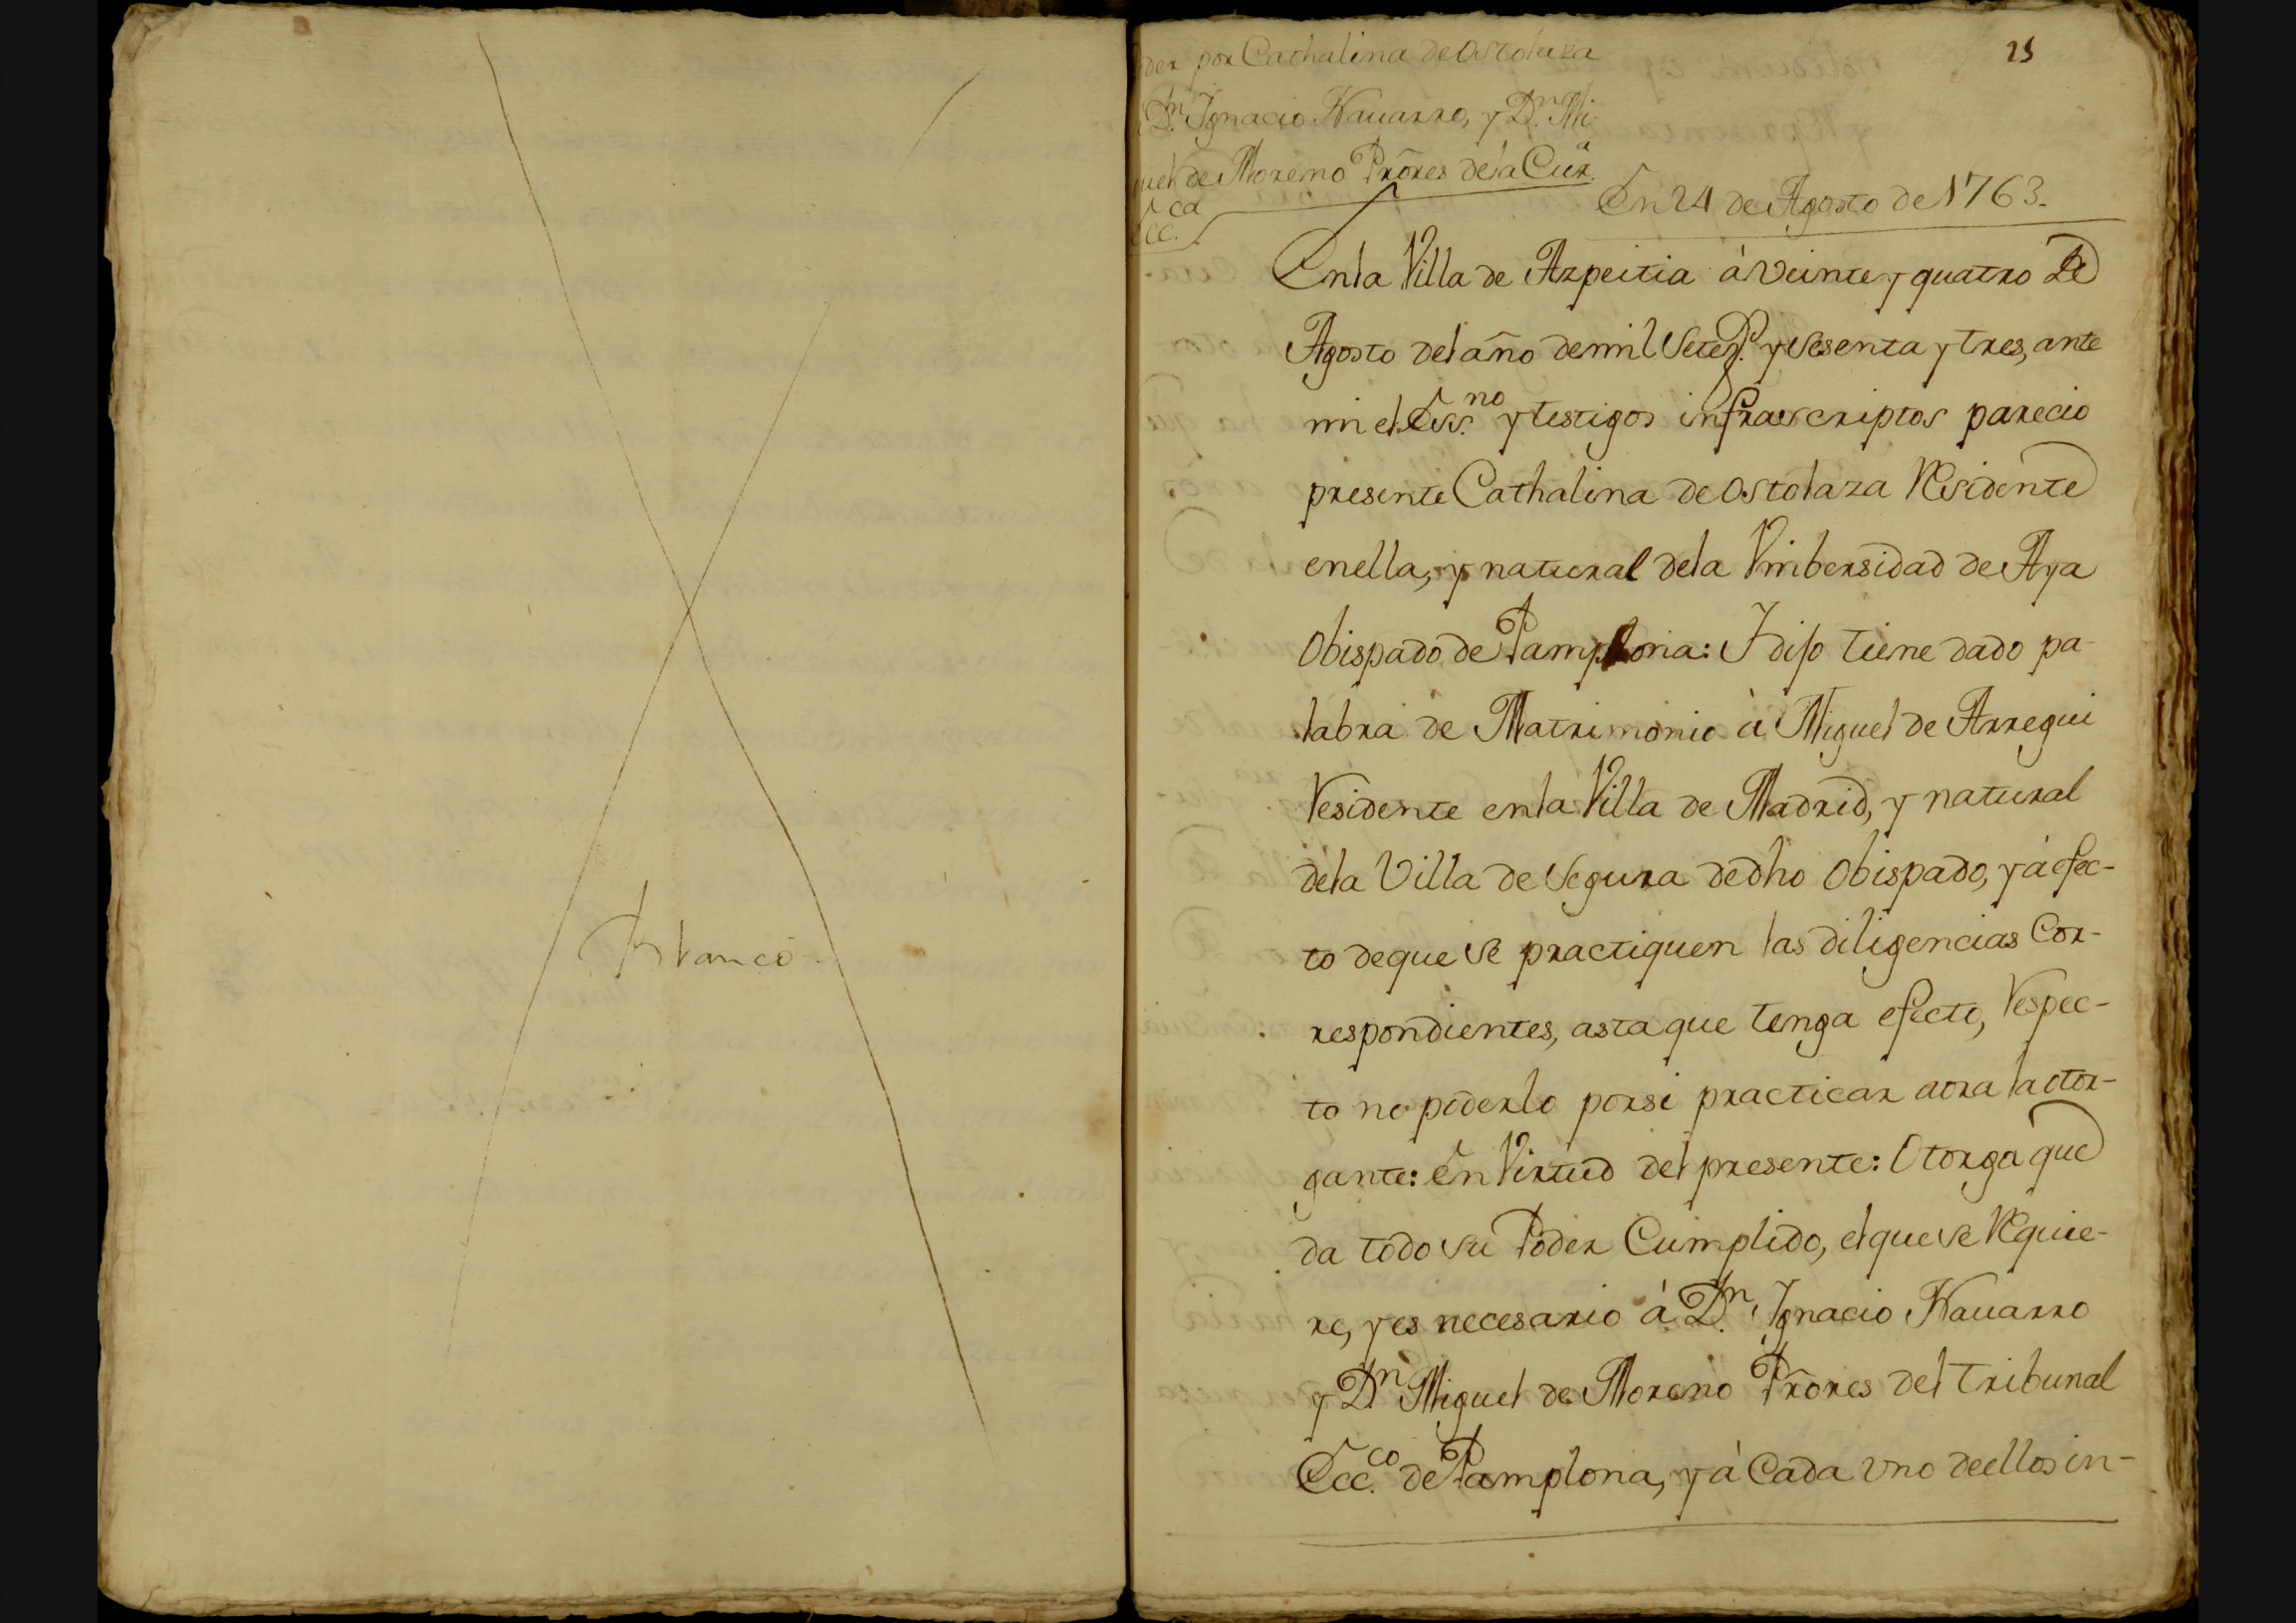 Blanco
25
der por Cathalina de Ostolaza
Dn. Ignacio Nauarro, y Dn. Mi
guel de Moreno Prõres dela Cur.a
Ecca
En 24 de Agosto de 1763.
En la Villa de Azpeitia à veinte y quatro de
Agosto del año de mil Setez.s y sesenta y tres, ante
mi el Ess.no y testigos infraescriptos parecio
presente Cathalina de Ostolaza Residente
en ella, y natural dela Vnibersidad de Aya
Obispado de Pamplona: I dijo tiene dado pa-
labra de Matrimonio à Miguel de Arregui
Residente en la Villa de Madrid, y natural
dela Villa de Segura de dho Obispado, y à efec-
to de que se practiquen las diligencias Cor-
respondientes, asta que tenga efecto, Respec-
to no poderlo por si practicar aora la otor-
gante: En Virtud del presente: Otorga que
da todo su Poder Cumplido, el que se Requie-
re, y es necesario à Dn. Ignacio Nauarro
y Dn. Miguel de Moreno Prõres del Tribunal
Ecc.co de Pamplona, y à Cada vno de ellos in-